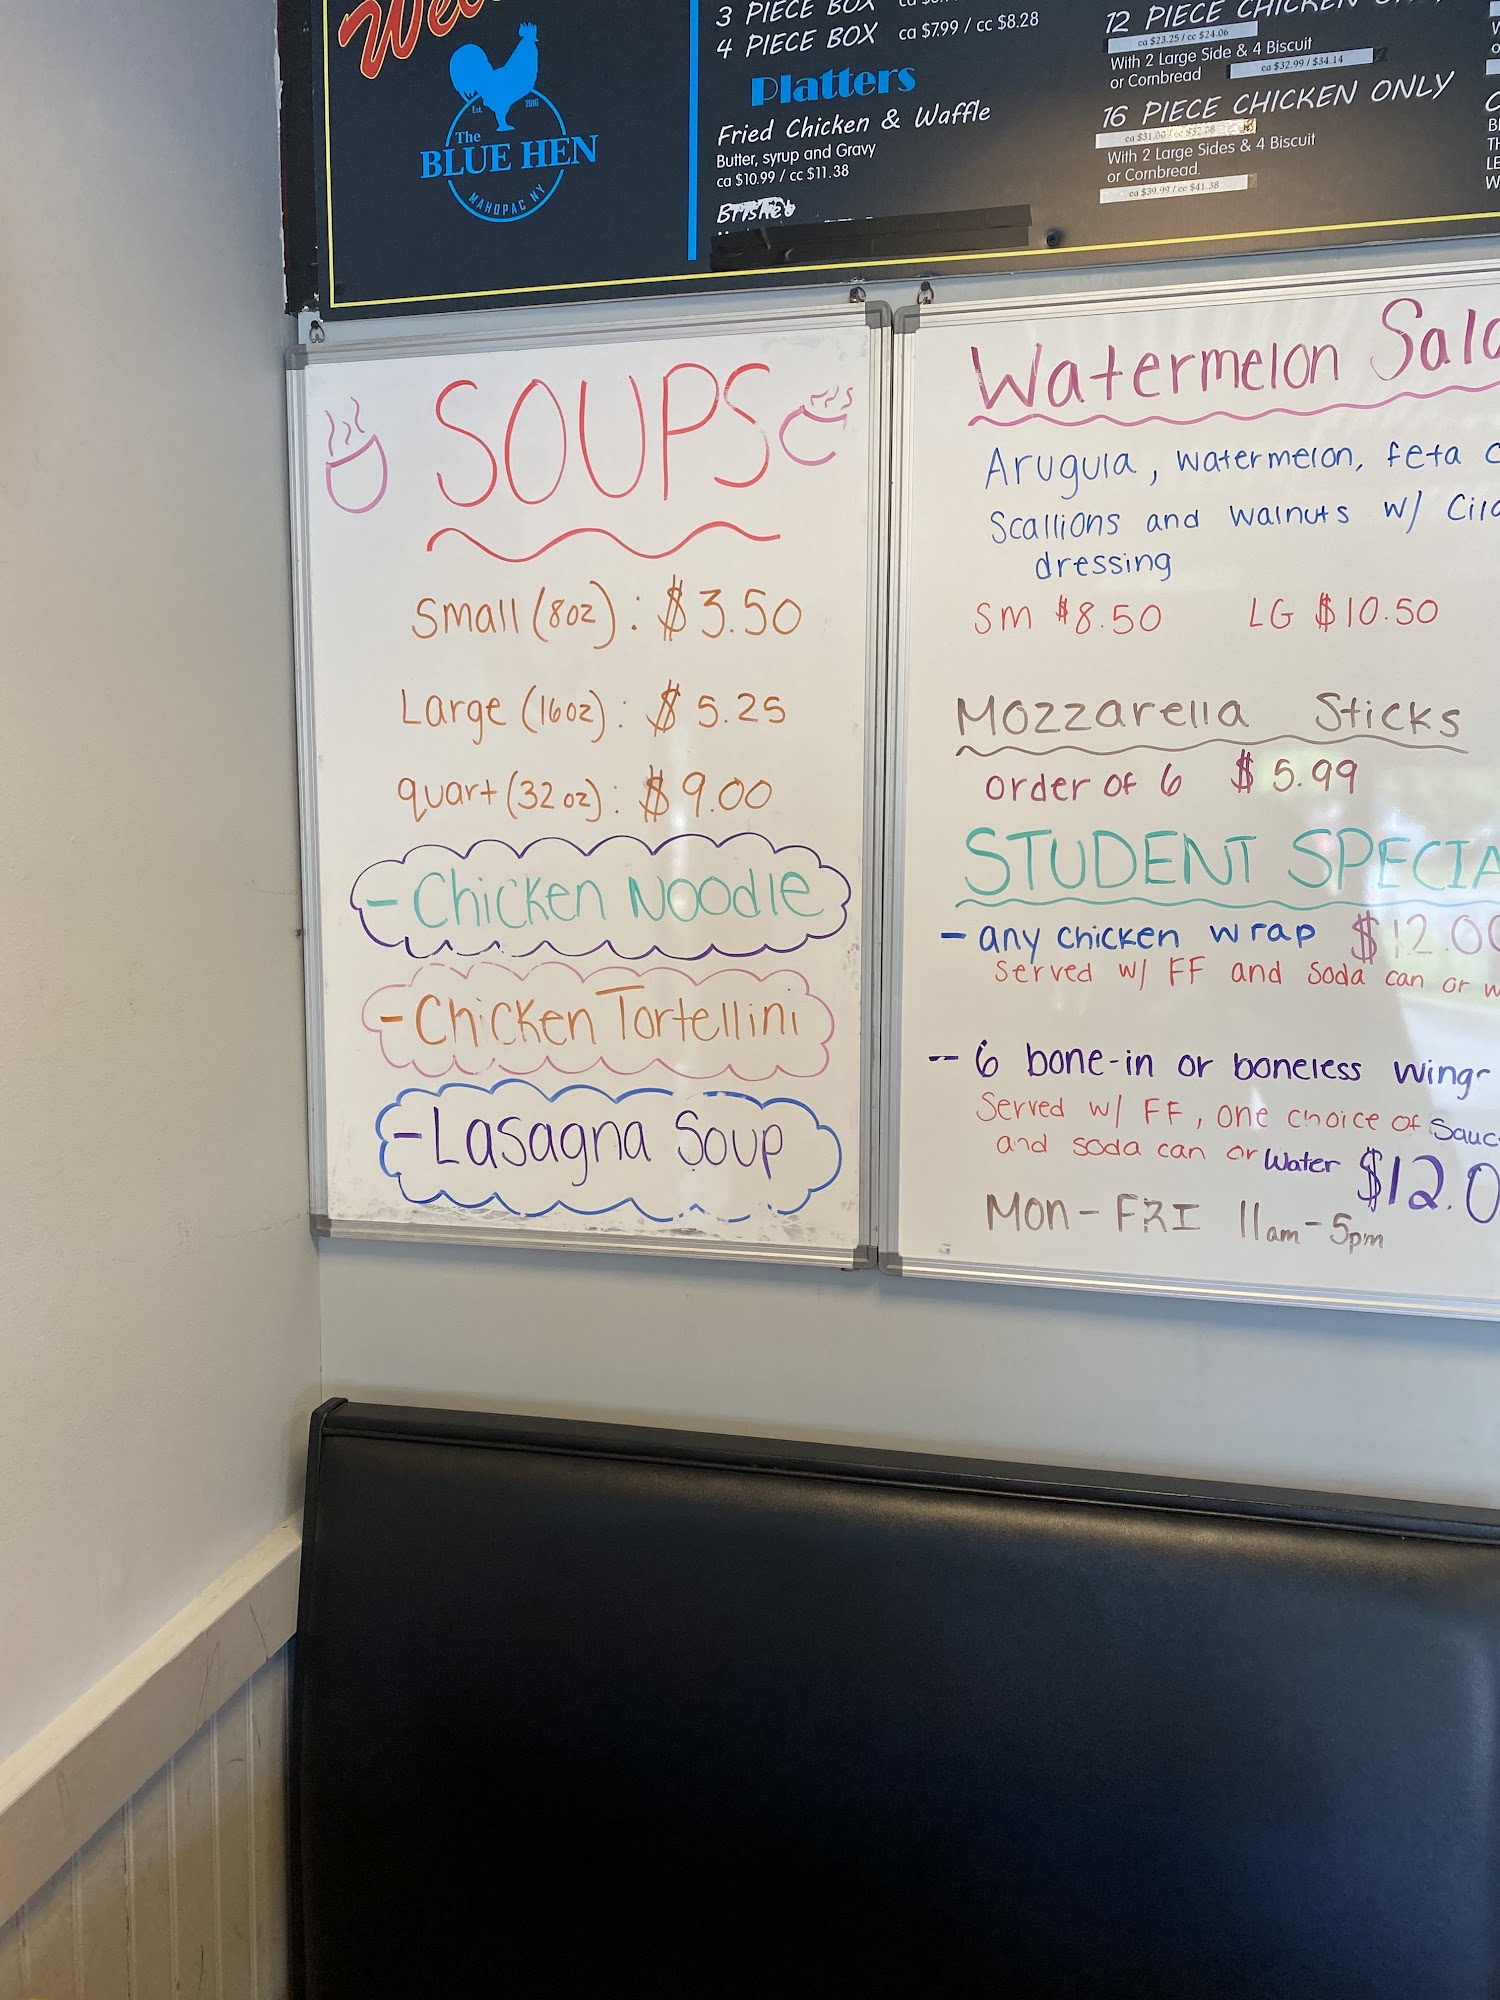 3 PIECE BOX
4 PIECE BOX ca $7.99 / cc $8.28
Platters
Fried Chicken & Waffle
Butter, syrup and Gravy
ca $10.99 / cc $11.38
Brisket
12 PIECE CHICKEN
ca $23.25 / cc $24.06
With 2 Large Side & 4 Biscuit
or Cornbread ca $32.99 / $34.14
16 PIECE CHICKEN ONLY
ca $31.00 / cc $32.08
With 2 Large Sides & 4 Biscuit
or Cornbread.
ca $39.99 / cc $41.38
Est. 2016
The
BLUE HEN
MAHOPAC NY
SOUPS
Small (8oz): $3.50
Large (16oz): $5.25
quart (32oz): $9.00
- Chicken Noodle
- Chicken Tortellini
- Lasagna Soup
Watermelon
Arugula, watermelon, feta
Scallions and walnuts w/
dressing
Sm $8.50 LG $10.50
Mozzarella Sticks
order of 6 $5.99
STUDENT
- any chicken wrap $12.00
Served w/ FF and soda can or
-- 6 bone-in or boneless
Served w/ FF, one choice of
and soda can or water $12.0
MON-FRI 11am-5pm